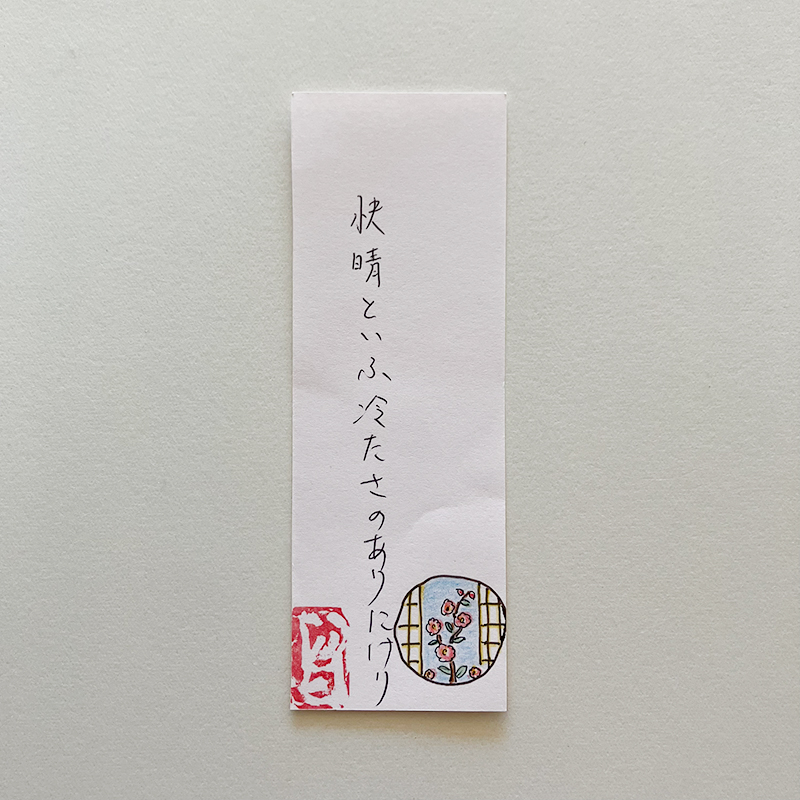 快晴といふ冷たさのありにけり